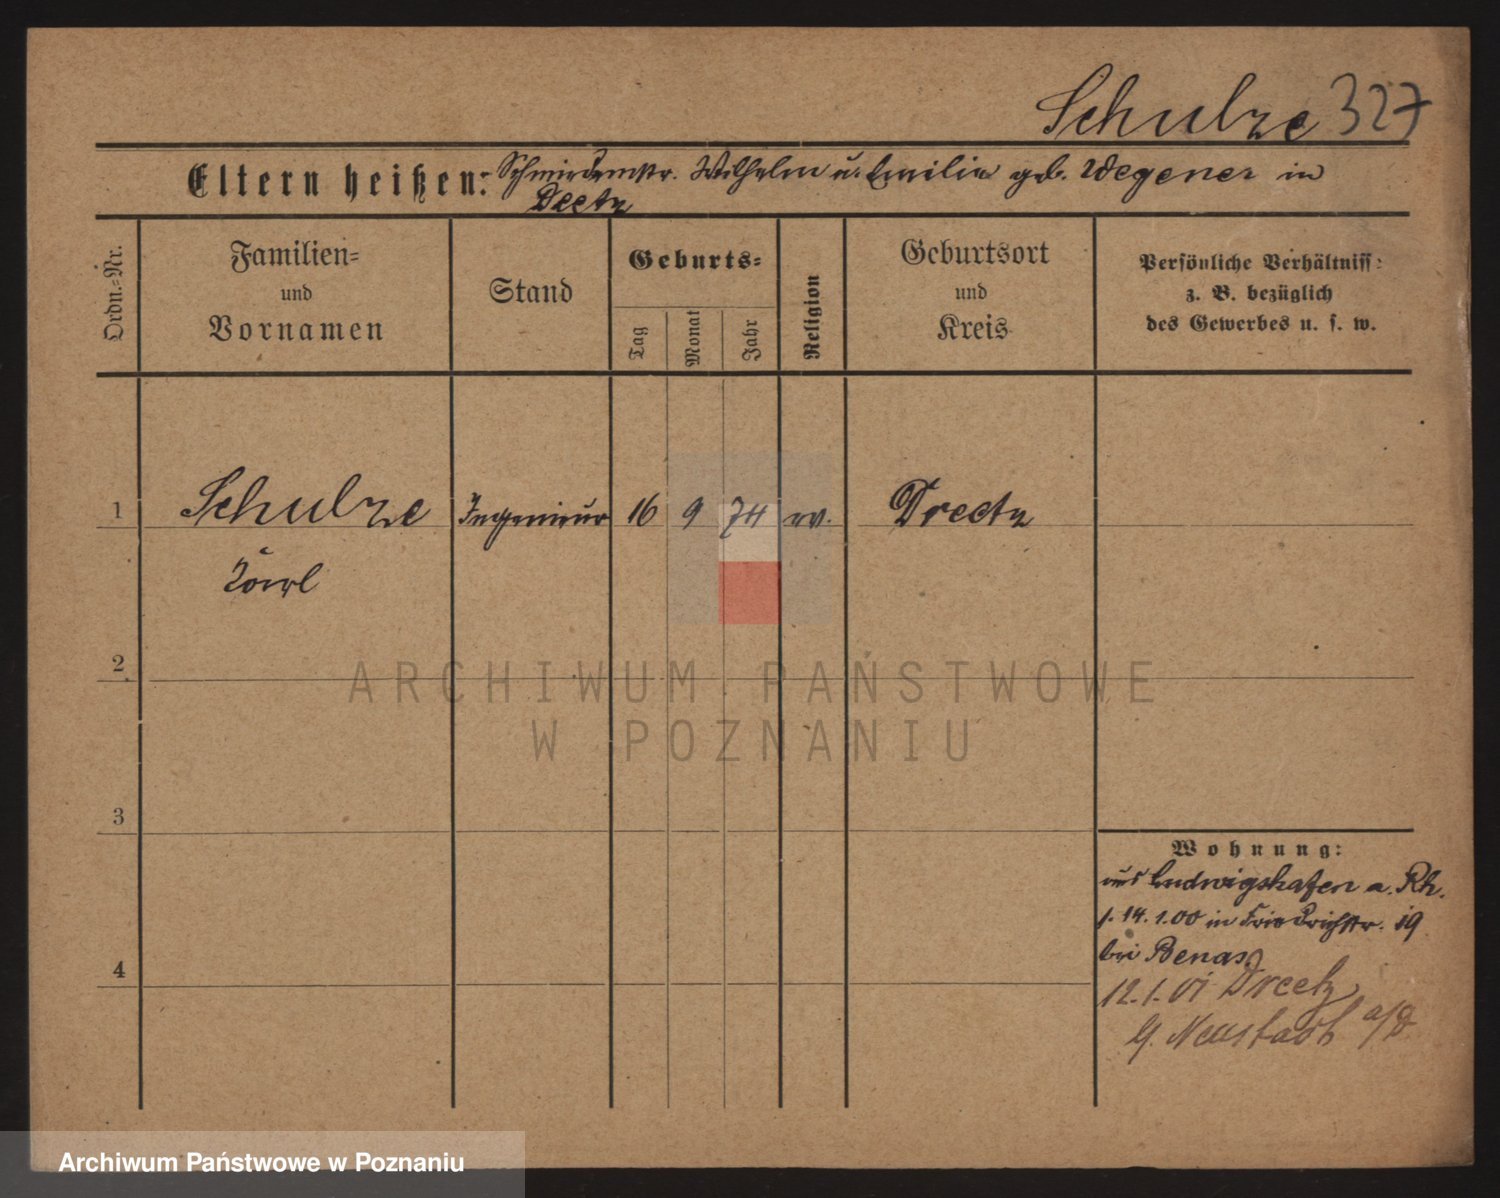 Schulze 327
Eltern heißen: Schmiedemstr. Wilhelm u. Emilie geb. Wegener in
Dreetz
Ordn.-Nr.
Familien-
und
Vornamen
Stand
Geburts-
Tag
Monat
Jahr
Religion
Geburtsort
und
Kreis
Persönliche Verhältniss-
z. B. bezüglich
des Gewerbes u. s. w.
1 Schulze Ingenieur 16 9 74 ev. Dreetz
Karl
2
3
4
Wohnung:
aus Ludwigshafen a. Rh.
s. 14.1.00 in Friedrichstr. 19
bei Benas.
12.1.01 Dreetz
b. Neustadt a/D
ARCHIWUM PAŃSTWOWE
W POZNANIU
Archiwum Państwowe w Poznaniu